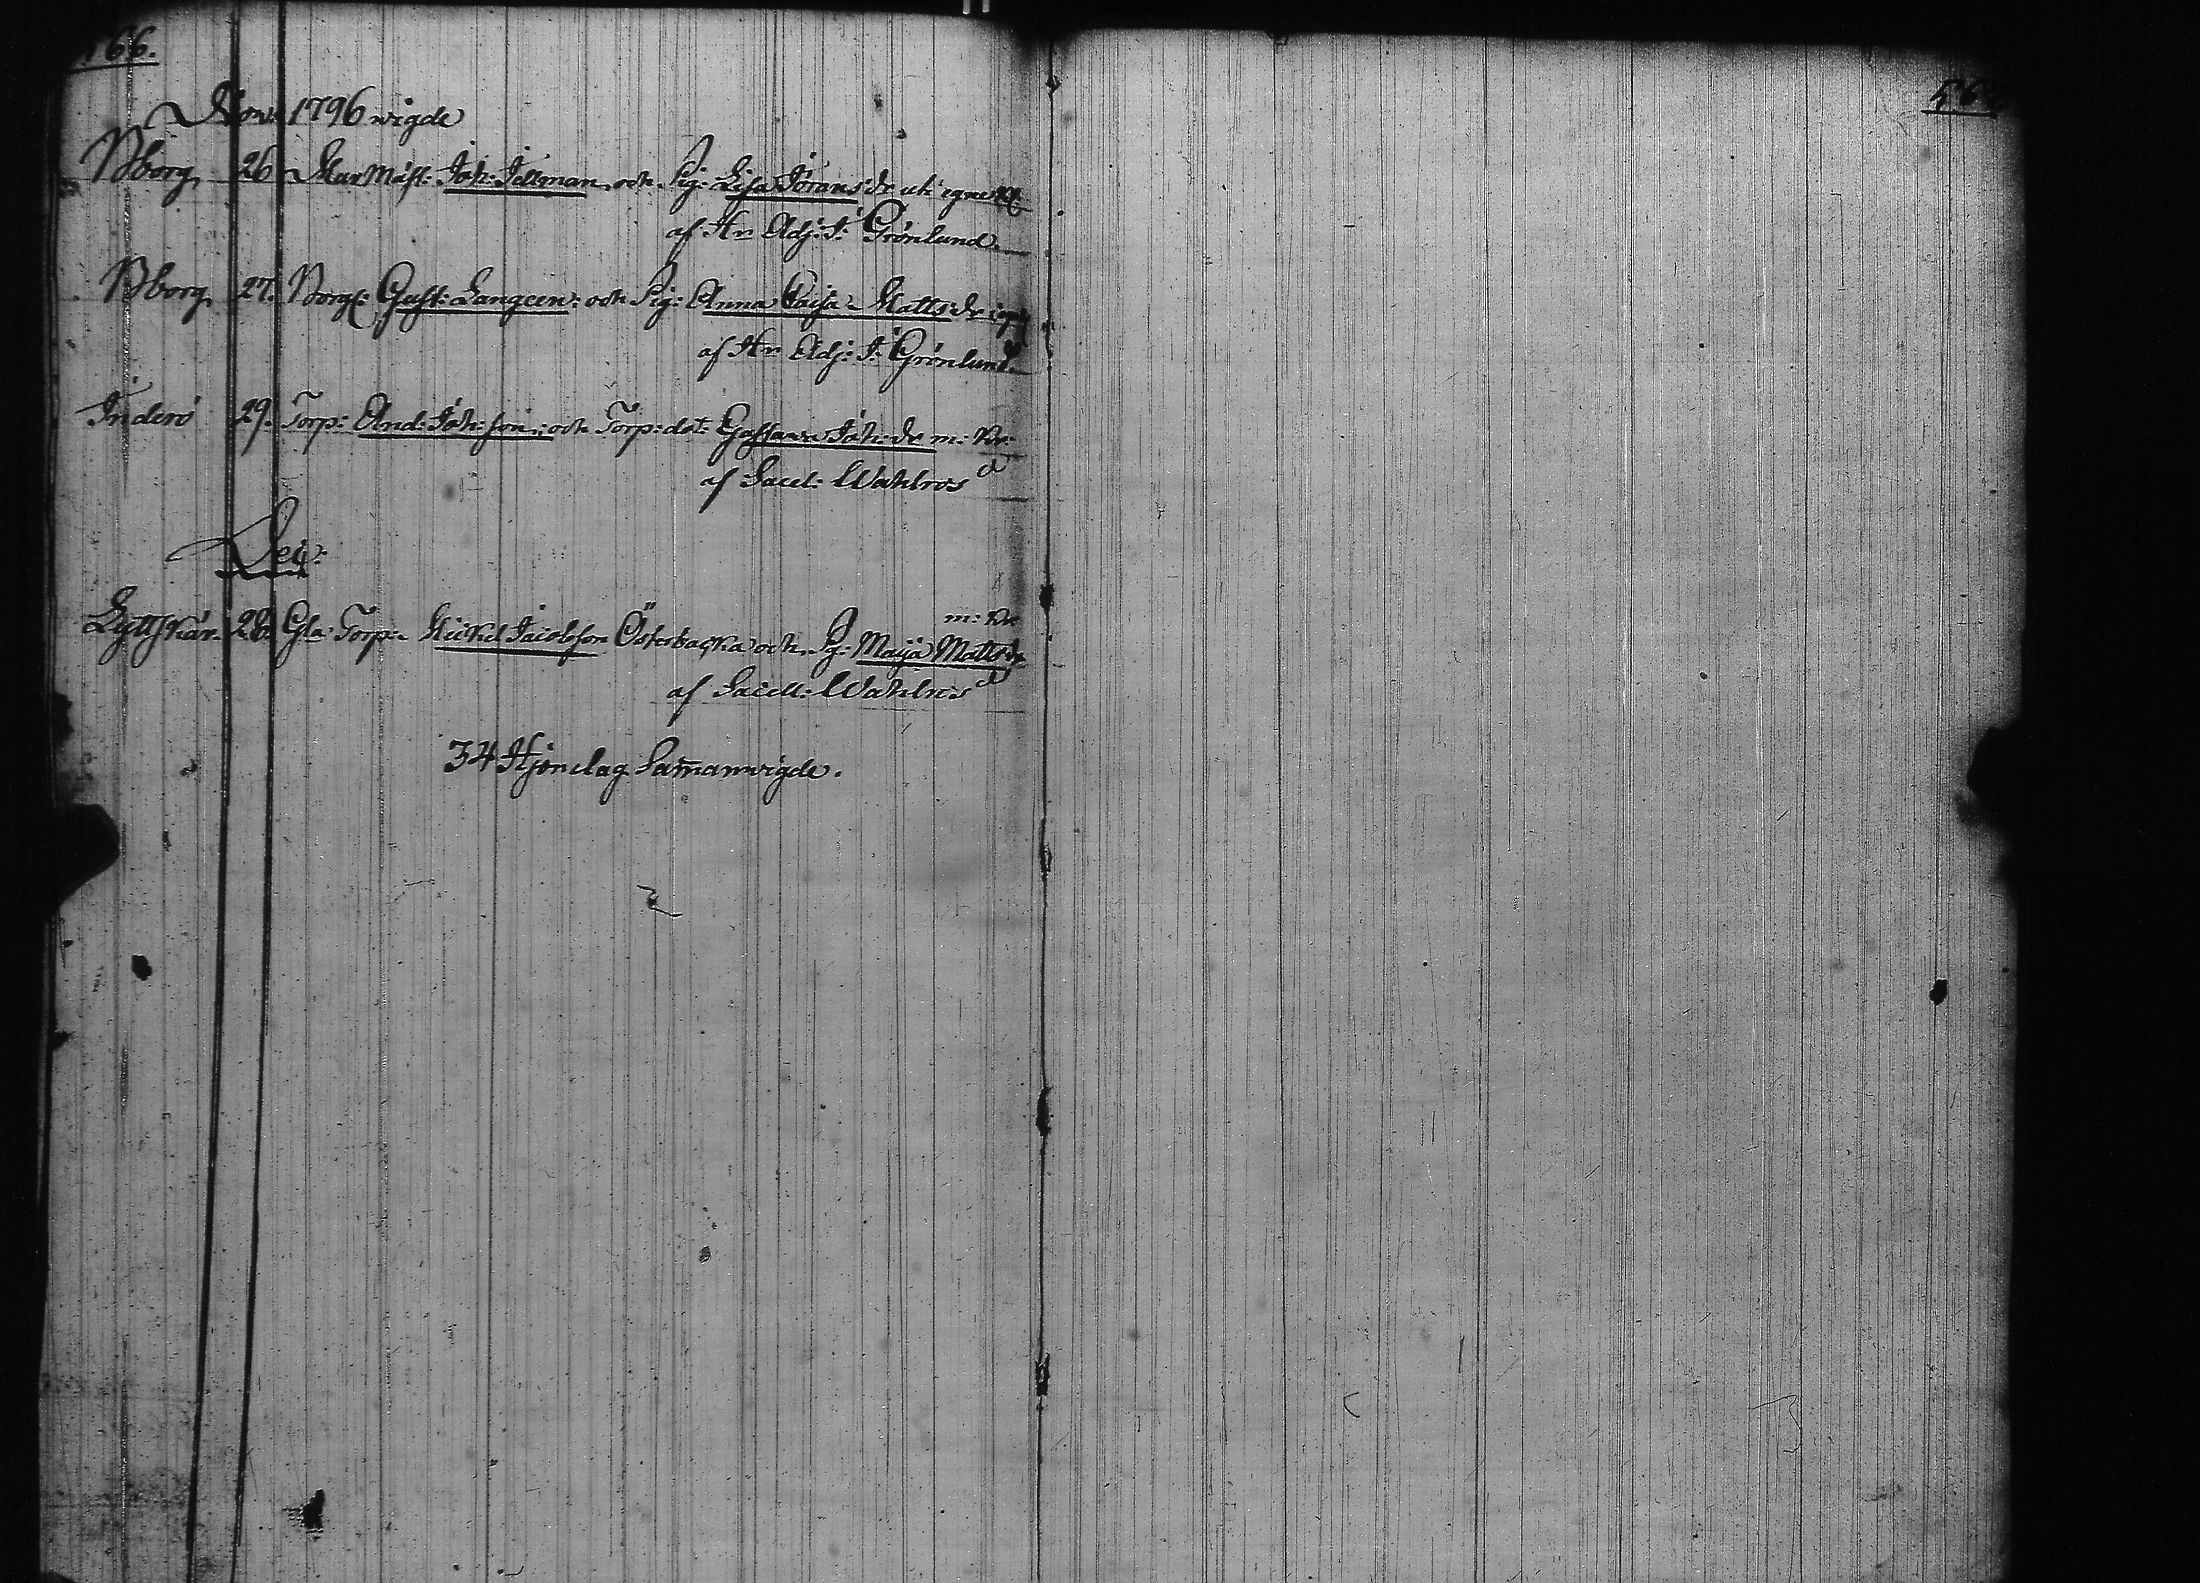 566.
Nov: 1796 wigde
Bborg. 26 Mur Mäst: Joh: Tillman och Pig: Lisa Jörans:dr uti egne
af Hr Adj: J: Grönlund.
Bborg. 27. Borg: Gust: Langeen: och Pig: Anna Caisa Matts:dr
af Hr Adj: J: Grönlund.
Inderö 29. Torp: And: Joh:son: och Torp:dot: Gustava Joh:dr m: Kr:
af Sacel: Wahlros
Dec:
m: Kr
Lyttskär. 28. Gla: Torp: Mickel Jacobsson Österbacka och P: Maija Matts:dr
af Sacell: Wahlros
34 Hjonelag Samanwigde.